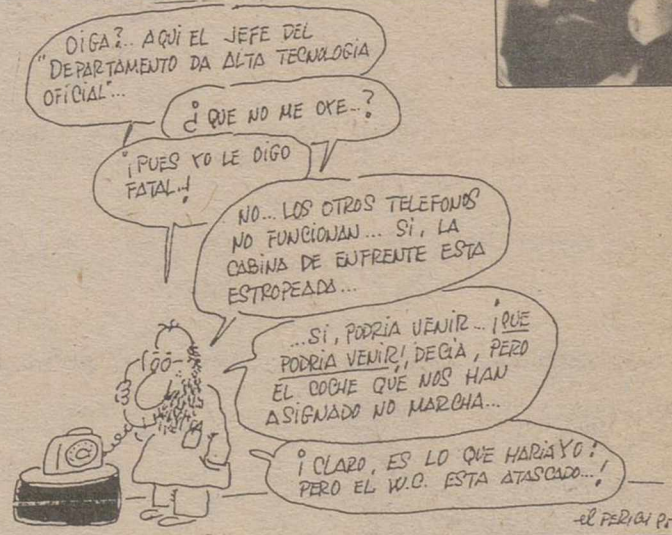 OIGA?.. AQUI EL JEFE DEL
"DEPARTAMENTO DA ALTA TECNOLOGIA
OFICIAL"...
¿ QUE NO ME OYE...?
¡ PUES YO LE OIGO
FATAL..!
NO... LOS OTROS TELEFONOS
NO FUNCIONAN... SI, LA
CABINA DE ENFRENTE ESTA
ESTROPEADA...
...SI, PODRIA VENIR... ¡ QUE
PODRIA VENIR!, DECIA, PERO
EL COCHE QUE NOS HAN
ASIGNADO NO MARCHA...
¡ CLARO, ES LO QUE HARIA YO!
PERO EL W.C. ESTA ATASCADO...!
el PERICH